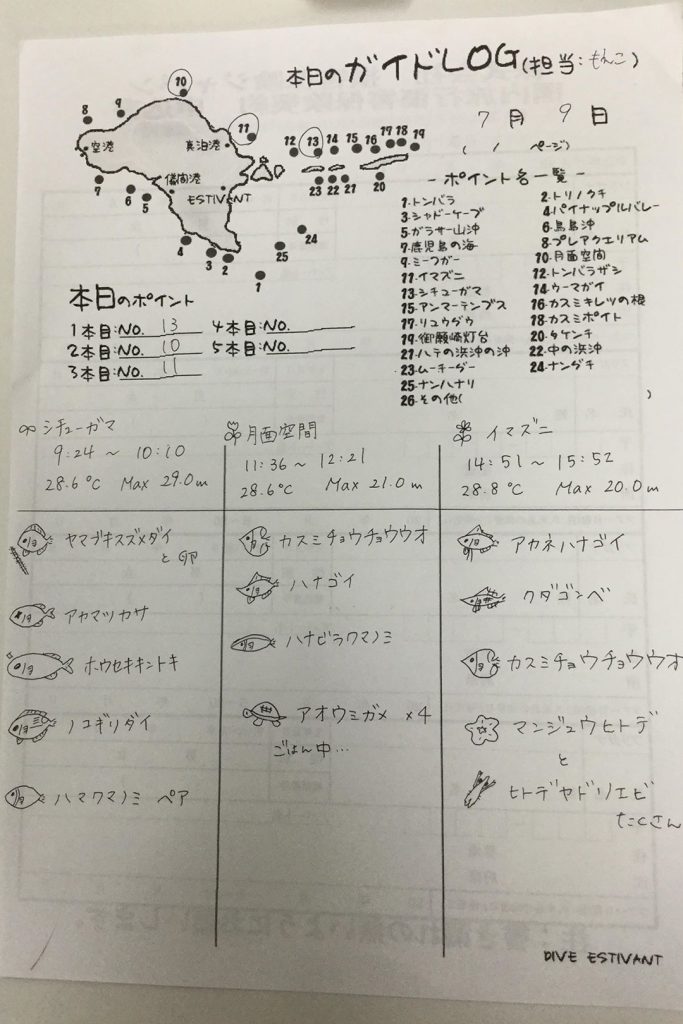 本日のガイドLOG(担当:もんこ)
7月 9日
( 1 ページ)
10
8
9
空港
真泊港
11
12
13
14
15
16
17
18
19
儀間港
ESTIVANT
23
22
21
20
7
6
5
4
3
2
1
25
24
- ポイント名一覧 -
1.トンバラ
2.トリノクチ
3.シャドーケーブ
4.パイナップルバレー
5.ガラサー山沖
6.鳥島沖
7.鹿児島の海
8.プレアクエリアム
9.ミーフガー
10.月面空間
11.イマズニ
12.トンバラザシ
13.シチューガマ
14.ウーマガイ
15.アンマーテンプス
16.カスミキレツの根
17.リュウグウ
18.カスミポイト
19.御願崎灯台
20.タケンチ
21.ハテの浜沖の沖
22.中の浜沖
23.ムーチーダー
24.ナングチ
25.ナンハナリ
26.その他( )
本日のポイント
1本目:NO. 13
4本目:NO.
2本目:NO. 10
5本目:NO.
3本目:NO. 11
シチューガマ
9:24 ~ 10:10
28.6℃ Max 29.0m
ヤマブキスズメダイ
と 卵
アカマツカサ
ホウセキキントキ
ノコギリダイ
ハマクマノミ ペア
月面空間
11:36 ~ 12:21
28.6℃ Max 21.0m
カスミチョウチョウウオ
ハナゴイ
ハナビラクマノミ
アオウミガメ ×4
ごはん中…
イマズニ
14:51 ~ 15:52
28.8℃ Max 20.0m
アカネハナゴイ
クダゴンベ
カスミチョウチョウウオ
マンジュウヒトデ
と
ヒトデヤドリエビ
たくさん
DIVE ESTIVANT